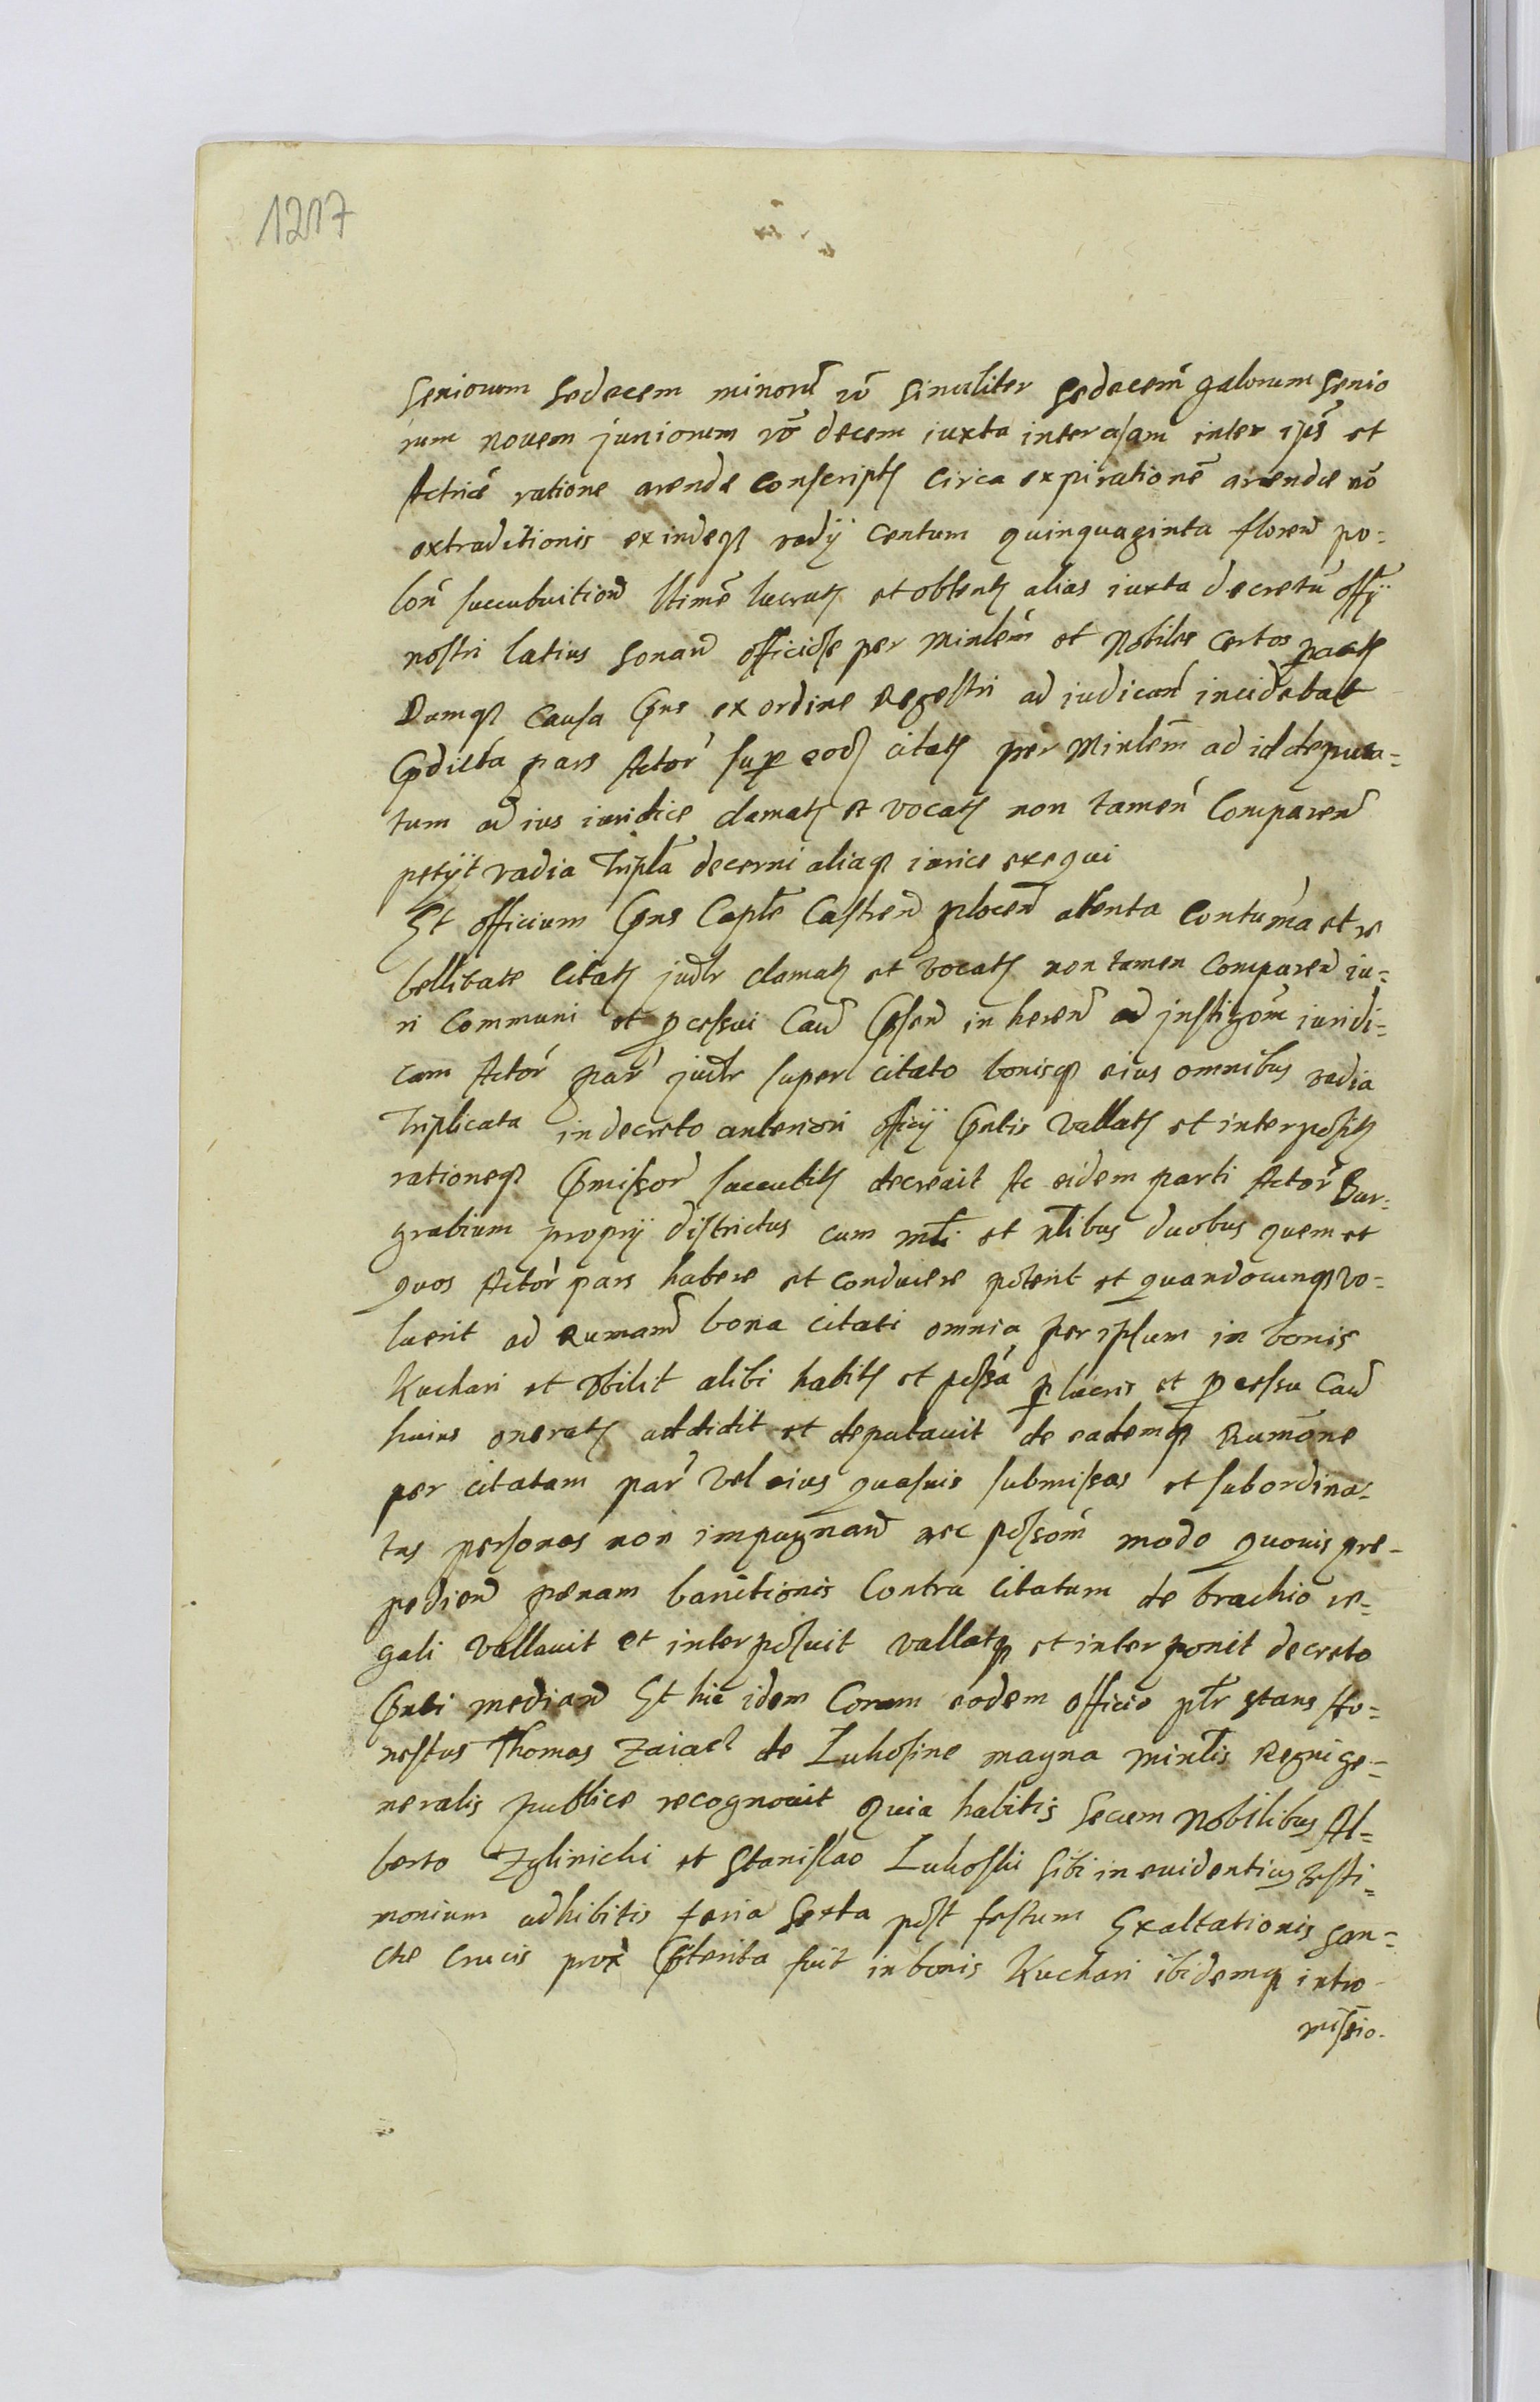 1217
seniorum sedecem minorũ võ similiter sedecem galorum senio
rum novem juniorum võ decem iuxta intercisam inter ip̃s et
Actricẽ ratione arendæ conscript circa expirationẽ arendæ nõ
extraditionis exindeq vadij centum quinquaginta floren po=
lon succubuition ltimẽ lucrat et obtent alias iuxta decretũ offÿ
nostri latius sonan officiose per Minlem et Nobiles certos
Dumq causa p̃ns ex ordine Regestri ad iudican incidebat
p̃dicta pars Actor sup eod citat per Minlem ad id deputa=
tum ad ius iuridice clamat et vocat non tamen Comparen
petÿt vadia Tripla decerni aliaq iurice exequi
Et officium p̃ns Capte Castren plocen atenta contuma et re
bellitate citat judr clamat et vocat non tamen comparen iu=
ri communi et pcessui Cau p̃sen inheren ad instigom iuridi=
cam Actor par judr super citato bonisq eius omnibus vadia
Triplicata in decreto anteriori officÿ p̃ntis Vallat et interposit
rationeq p̃missor succubit decreuit Ac eidem parti Actor Bur=
grabium proprÿ districtus cum mli et nlibus duobus quem et
quos Actor pars habere et conducere poterit et quandocunq vo=
luerit ad Rumand bona citati omnia per ipsum in bonis
Kuchari et vbilit alibi habit et possa p lucris et pcessu Cau
huius onerat addidit et deputauit de eademq Rumõne
per citatam par vel eius quasuis submissas et subordina=
tas personas non impugnan nec possom modo quouis pre-
pedien pœnam banitionis Contra citatum de brachio re=
gali Vallauit et interposuit vallatq et interponit decreto
p̃nti median Et hic idem Coram eodem officio pltr stans Ho=
nestus Thomas Zaiacz de Lukosine magna Minlis Regni ge=
neralis publice recognouit quia habitis secum Nobilibus Al=
berto Zglinicki et Stanislao Lukoski sibi in euidentius testi=
monium adhibitis feria sexta post festum Exaltationis san=
ctæ Crucis prox p̃terita fuit in bonis Kuchari ibidemq intro-
missio-